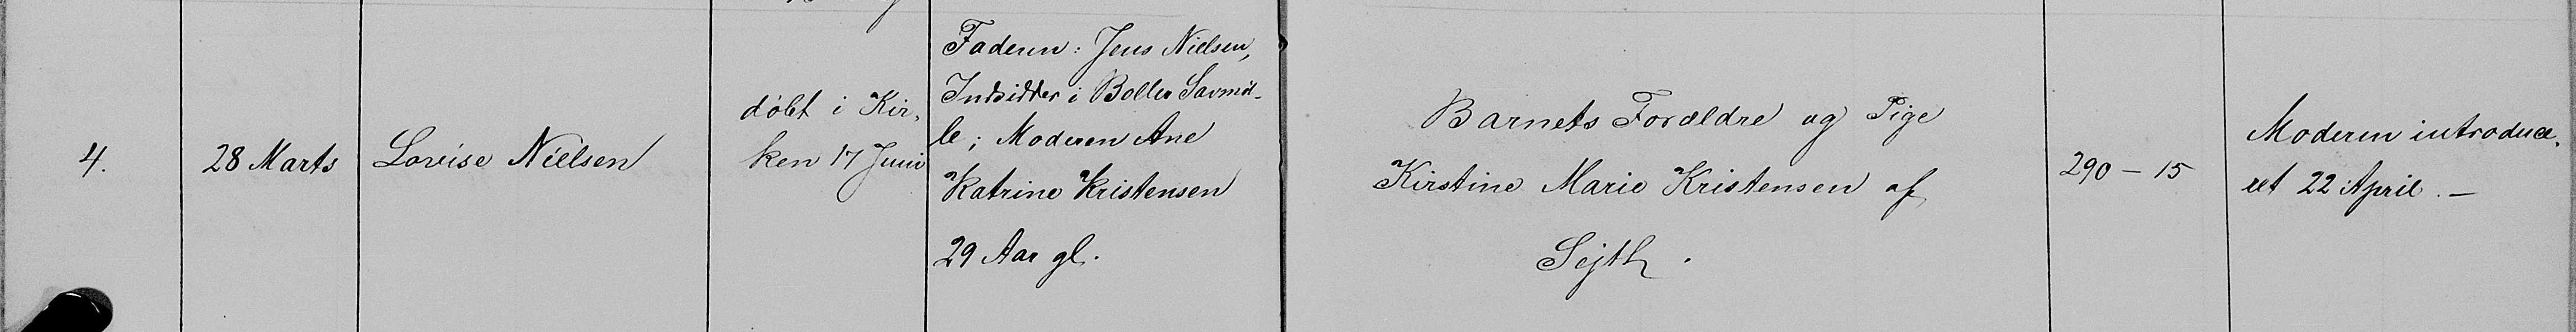 4.
28 Marts
Lovise Nielsen
døbt i Kir-
ken 17 Juni
Faderen: Jens Nielsen,
Indsidder i Boller Savmøl-
le; Moderen Ane
Katrine Kristensen
29 Aar gl.
Barnets Forældre og Pige
Kirstine Marie Kristensen af
Sejth.
290 - 15
Moderen introduce-
ret 22 April. -